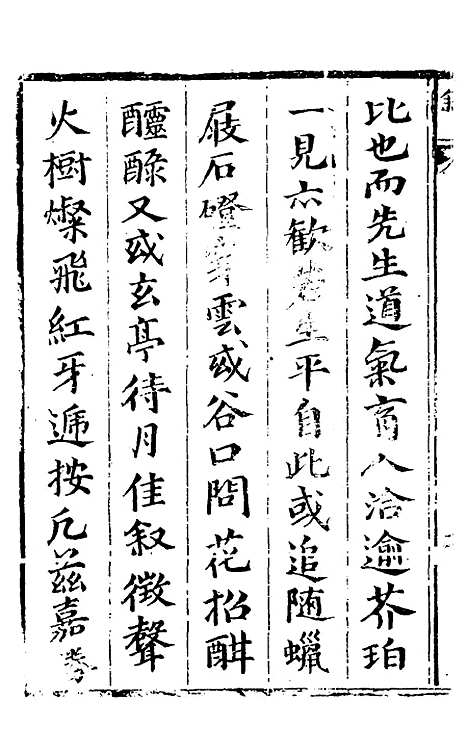 比也而先生道氣育人洽逾芥珀
一見亦歡若生平自此或追随蠟
屐石磴穿雲或谷口問花招酣
醽醁又或玄亭待月佳叙徵聲
火樹燦飛紅牙遞按凢兹嘉